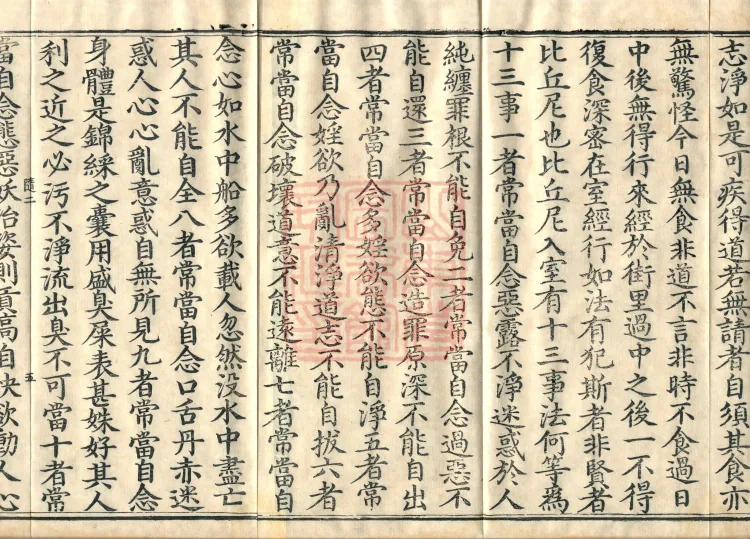 志淨如是可疾得道若無請者自須其食亦
無驚怪今日無食非道不言非時不食過日
中後無得行來經於街里過中之後一不得
復食深密在室經行如法有犯斯者非賢者
比丘尼也比丘尼入室有十三事法何等為
十三事一者常當自念惡露不淨迷惑於人
純纏罪根不能自免二者常當自念過惡不
能自還三者常當自念造罪原深不能自出
四者常當自念多婬欲態不能自淨五者常
當自念婬欲乃亂清淨道志不能自拔六者
常當自念破壞道意不能遠離七者常當自
念心如水中船多欲載人忽然没水中盡亡
其人不能自全八者常當自念口舌丹赤迷
惑人心心亂意惑自無所見九者常當自念
身體是錦綵之囊用盛臭屎表甚姝好其人
利之近之必污不淨流出臭不可當十者常
隨二 五
當自念態惡妖冶姿則貢高自快欲動人心